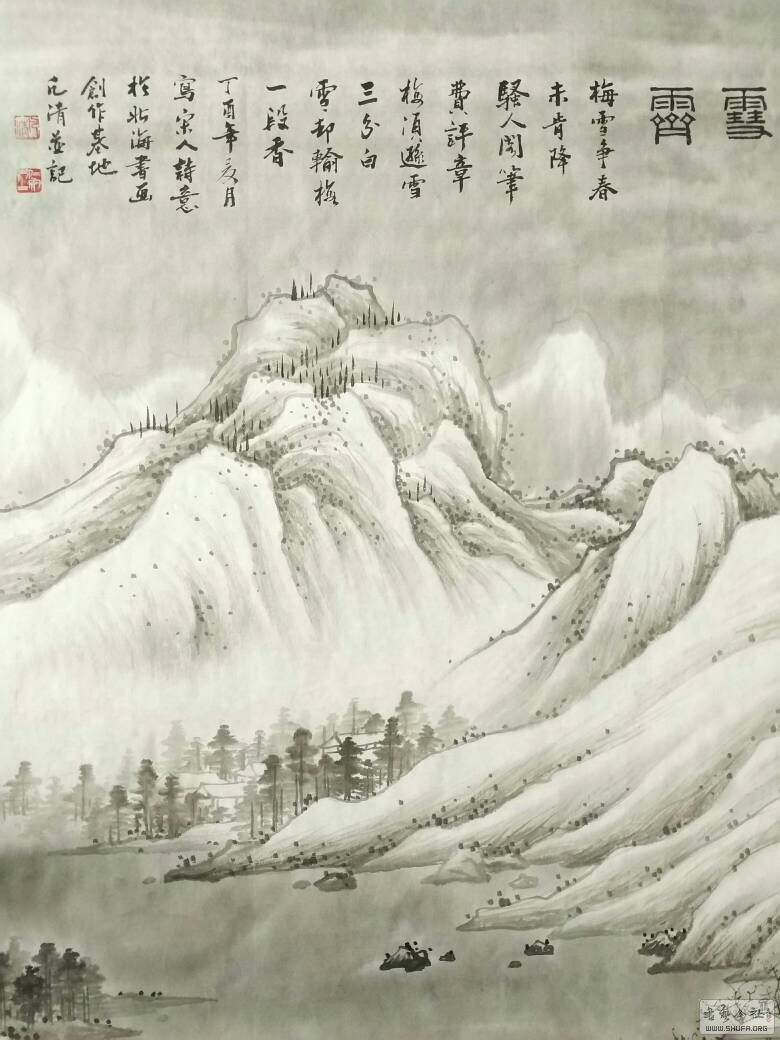 雪霽
梅雪争春
未肯降
騷人閣筆
費評章
梅須遜雪
三分白
雪却輸梅
一段香
丁酉年亥月
寫宋人詩意
於北海書画
創作基地
清並記
WWW.SHUFA.ORG